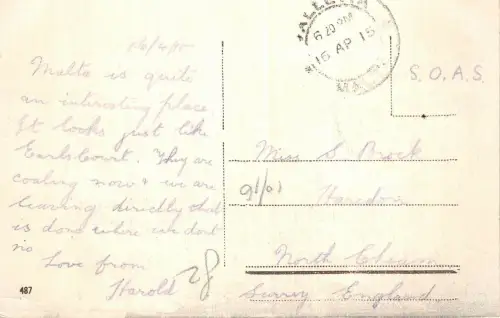 16/4/15
Malta is quite
an interesting place
It looks just like
Earls Court. They are
coaling now & we are
leaving directly that
is done where we dont
no
Love from
Harold
28
487
VALLETTA
6 20 PM
16 AP 15
MALTA
S.O.A.S.
Miss S Brock
91/01
North Cheam
Surrey England